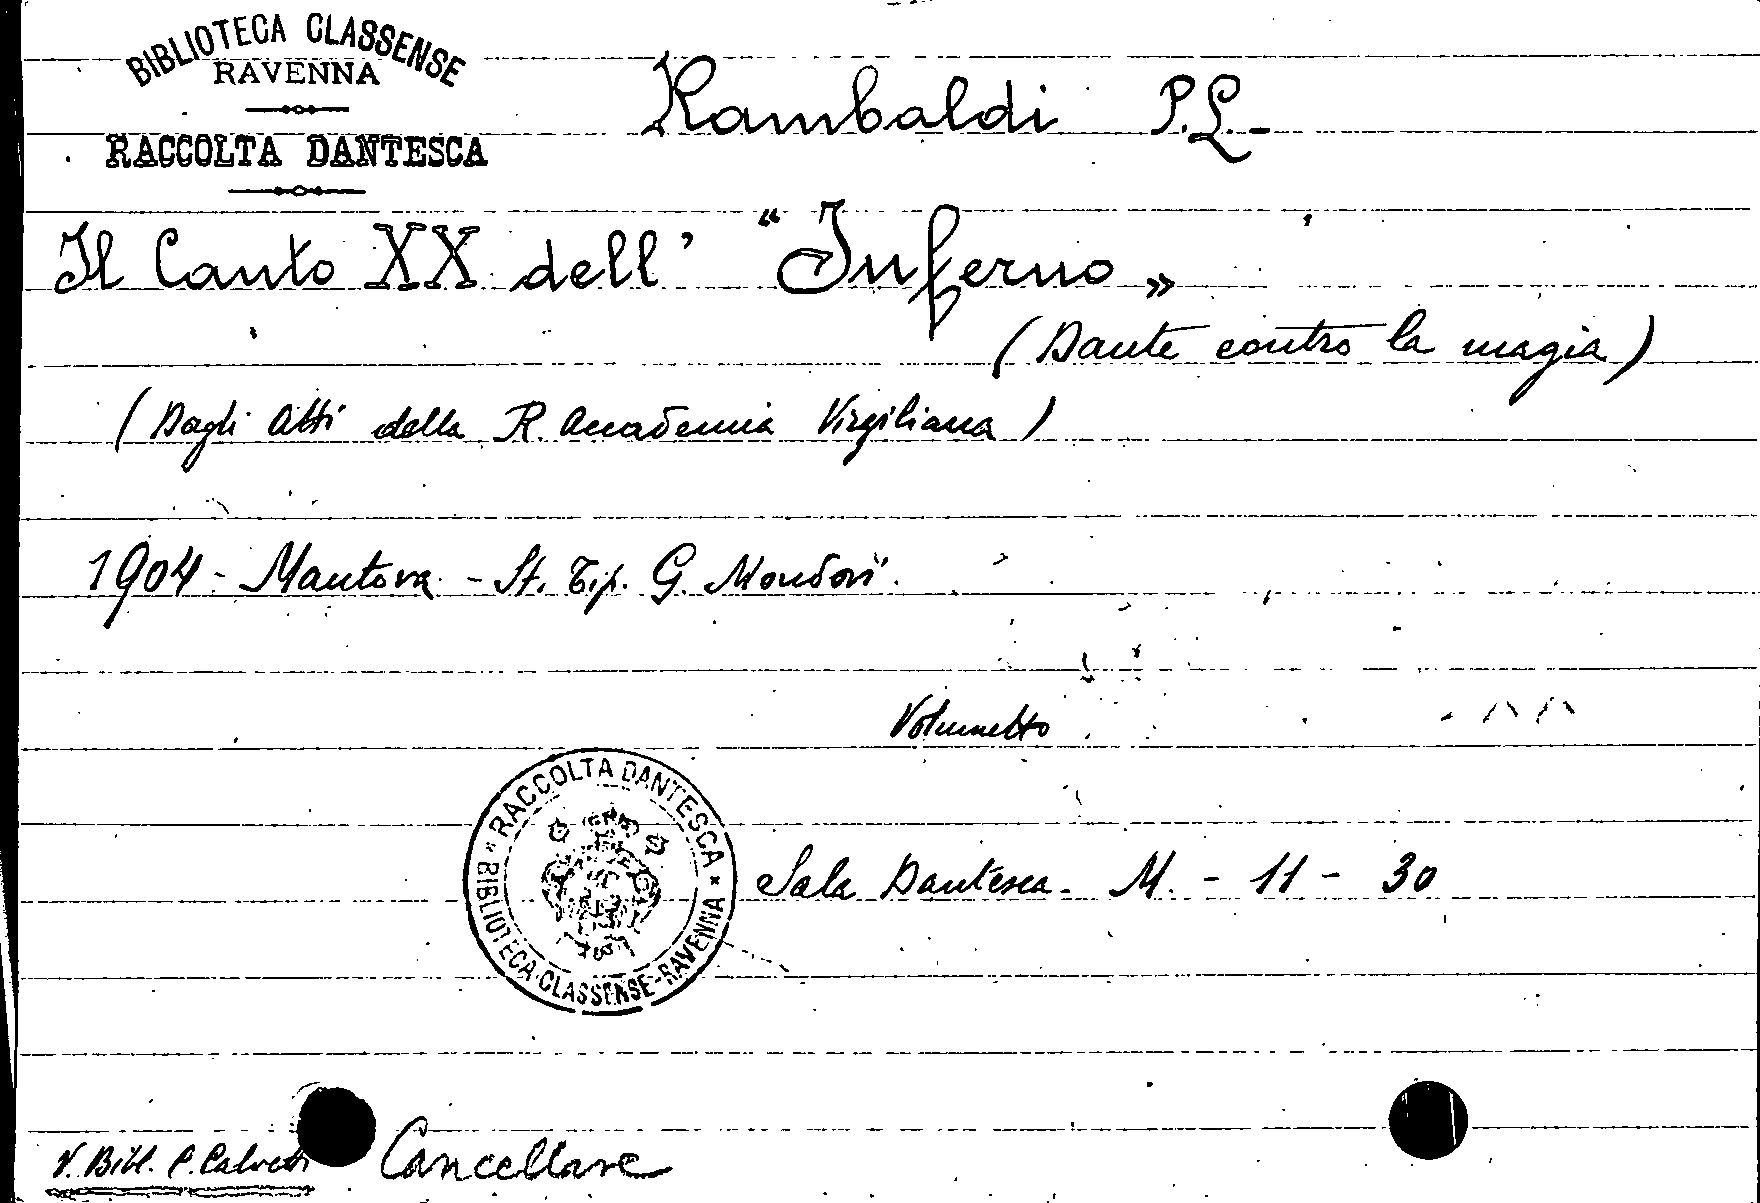 BIBLIOTECA CLASSENSE
RAVENNA
RACCOLTA DANTESCA
Rambaldi P.L.-
Il Canto XX dell' "Inferno„
(Dante contro la magia)
(Dagli Atti della R. Accademia Virgiliana)
1904 - Mantova - St. Tip. G. Mondovì.
Volumetto
RACCOLTA DANTESCA
BIBLIOTECA CLASSENSE - RAVENNA
Sala Dantesca - M. - 11 - 30
V. Bibl. C. Calvetti
Cancellare